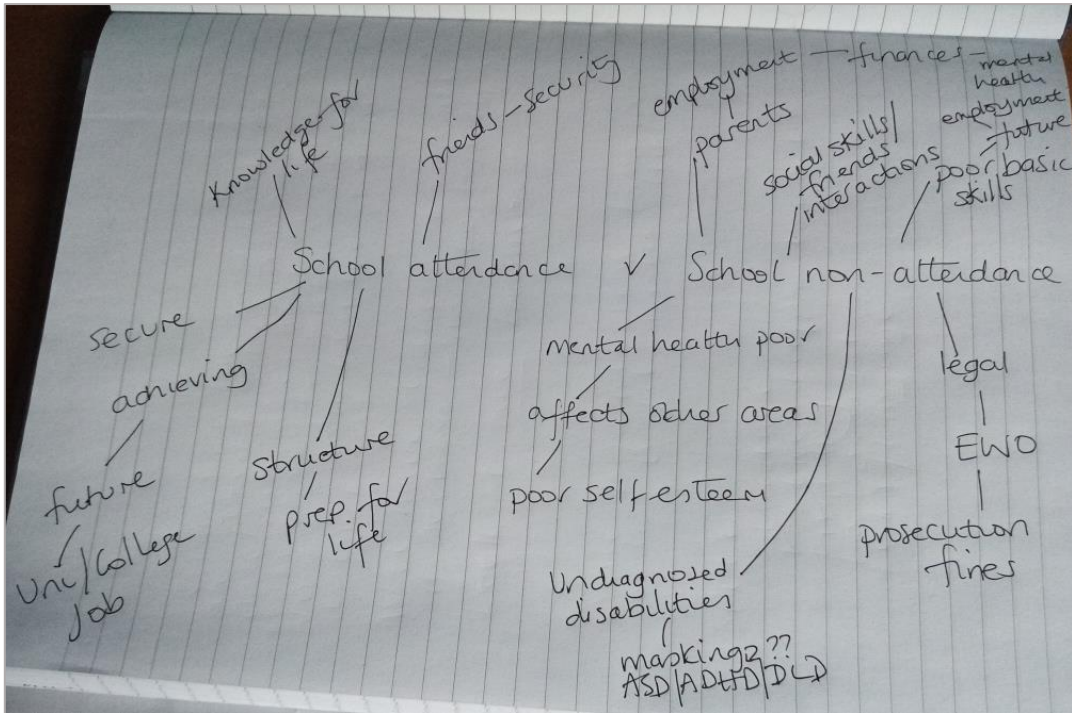 Knowledge for
life
friends - security
employment - finances - mental
health
parents
social skills/
friends/
interactions
employment
future
poor basic
skills
School attendance v School non-attendance
secure
achieving
future
Uni/College
Job
structure
prep. for
life
mental health poor
affects other areas
poor self esteem
Undiagnosed
disabilities
masking??
ASD/ADHD/DLD
legal
EWO
prosecution
fines